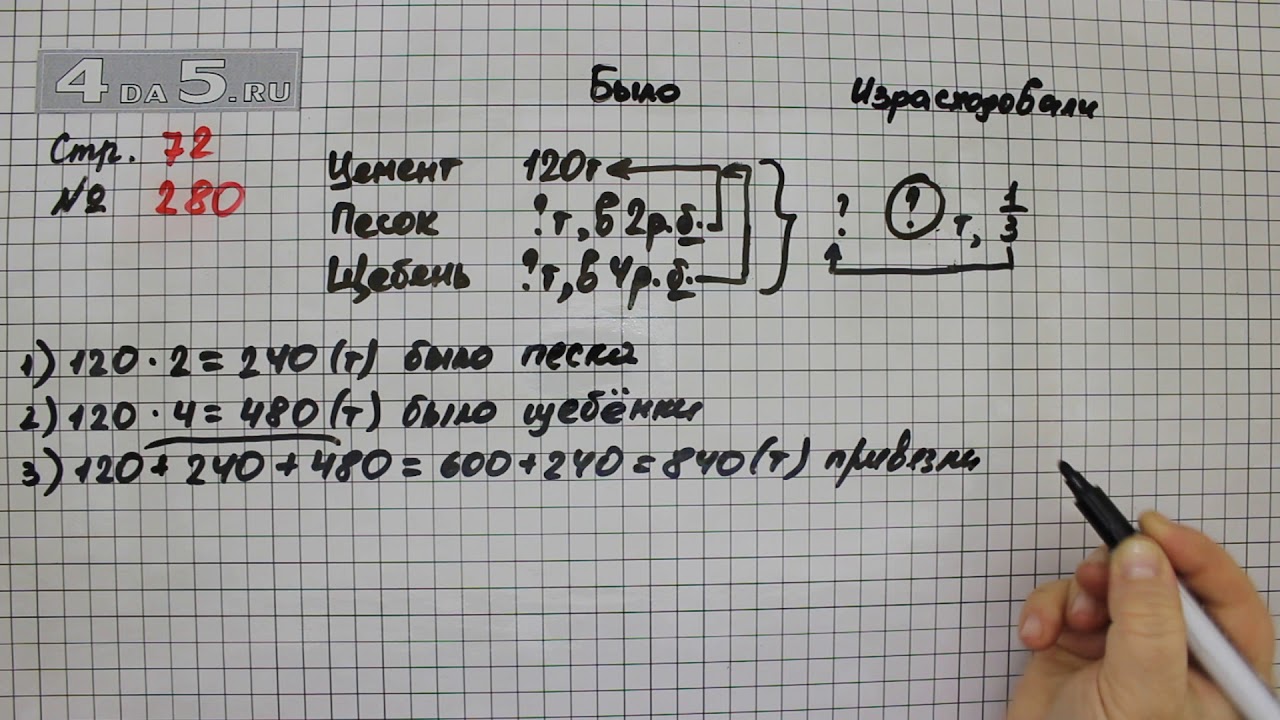 4 DA 5.RU
Стр. 72
№ 280
Было Израсходовали
Цемент 120т
Песок ? т, в 2р. б.
Щебень ? т, в 4р. б.
? ? т, 1/3
1) 120 · 2 = 240 (т) было песка
2) 120 · 4 = 480 (т) было щебёнки
3) 120 + 240 + 480 = 600 + 240 = 840 (т) привезли